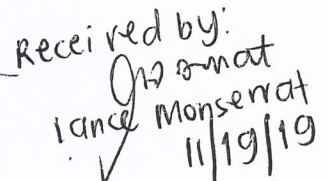 Received by:
lance Monserrat
11/19/19